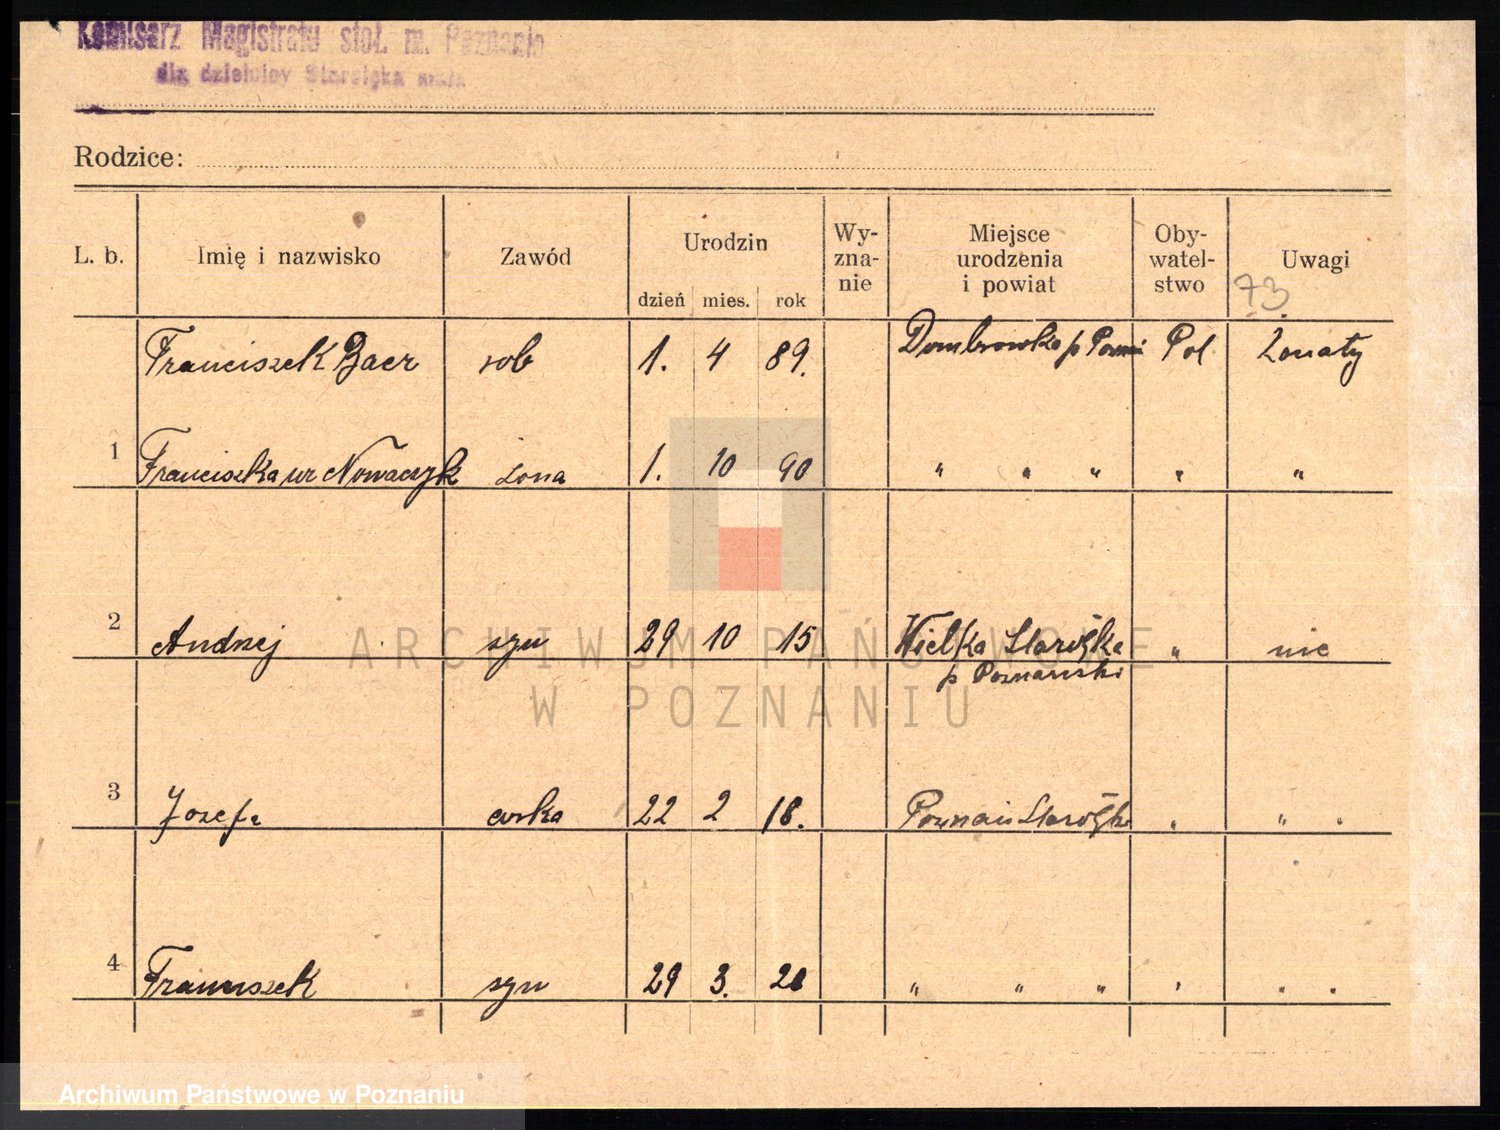 Komisarz Magistratu stoł. m. Poznania
dla dzielnicy Starołęka mała
Rodzice:
L. b. Imię i nazwisko Zawód Urodzin Wy- Miejsce Oby- Uwagi
dzień mies. rok zna- urodzenia watel-
nie i powiat stwo
73
Franciszek Baer rob 1. 4 89. Dombrowka p Pozn Pol żonaty
1 Franciszka ur Nowaczyk żona 1. 10 90 " " " " "
2 Andrzej syn 29 10 15 Wielka Starołęka " nie
p Poznański
3 Jozefa curka 22 2 18. Poznań Starołęka " " "
4 Franciszek syn 29 3. 20 " " " " " "
ARCHIWUM PAŃSTWOWE
W POZNANIU
Archiwum Państwowe w Poznaniu